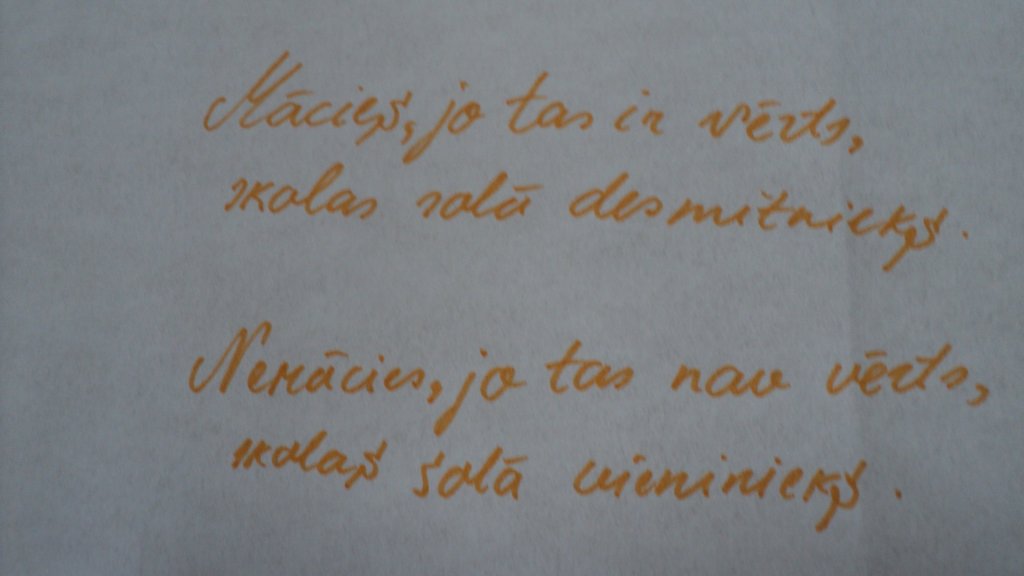 Mācieš, jo tas ir vērts,
skolas solā desmitniekš.
Nemācies, jo tas nav vērts,
skolaš šolā vieniniekš.